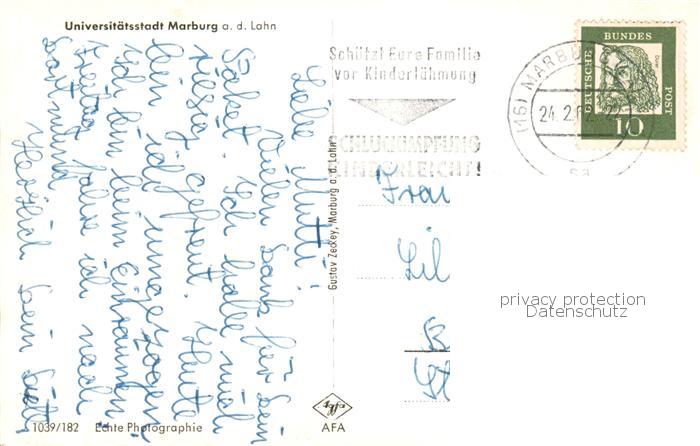 Universitätsstadt Marburg a. d. Lahn
Liebe Mutti!
Vielen Dank für Dein
Paket. Ich habe mich
riesig gefreut. Heute
bin ich umgezogen.
Ich bin beim Einräumen.
Freitag fahre ich nach
Dortmund.
Herzlich Dein
Gustav Zeckey, Marburg a. d. Lahn
1039/182 Echte Photographie
Agfa
AFA
Schützt Eure Familie
vor Kinderlähmung
SCHLUCKIMPFUNG
KINDERLEICHT!
(16) MARB
24. 2. 62
DEUTSCHE BUNDES POST
10
Frau
Lil
privacy protection
Datenschutz